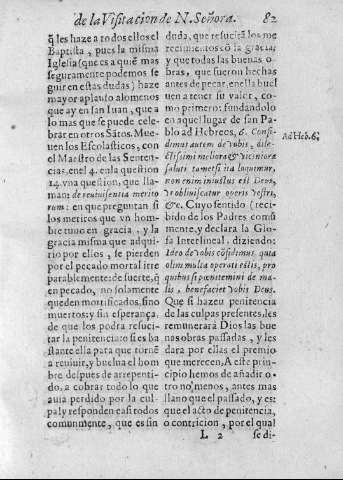 de la Visitacion de N. Señora. 82
q̃ les haze a todos ellos el
Baptista, pues la misma
Iglesia (que es a quiẽ mas
seguramente podemos se
guir en estas dudas) haze
mayor aplauso alomenos
que ay en san Iuan, que a
lo mas que se puede cele-
brar en otros Sãtos. Mue-
uen los Escolasticos, con
el Maestro de las Senten-
cias, en el 4. en la question
14. vna question, que lla-
man: de reuiuiscentia merito
rum: en que preguntan si
los meritos que vn hom-
bre tuuo en gracia, y la
gracia misma que adqui-
rio por ellos, se pierden
por el pecado mortal irre
parablemente: de suerte, q̃
en pecado, no solamente
queden mortificados, sino
muertos: y sin esperança,
de que los podra resuci-
tar la penitencia: o si es ba
stante ella para que tornẽ
a reuiuir, y buelua el hom
bre despues de arrepenti-
do, a cobrar todo lo que
auia perdido por la cul-
pa: y responden casi todos
comunmente, que es sin
duda, que resucitã los me
recimientos cõ la gracia;
y que todas las buenas o-
bras, que fueron hechas
antes de pecar, en ella buel
uen a tener su valor, co-
mo primero: fundandolo
en aquel lugar de san Pa-
blo ad Hebreos, 6. Confi-
dimus autem de vobis, dile-
ctissimi meliora & viciniora
saluti tametsi ita loquimur,
non enim iniustus est Deus,
vt obliuiscatur operis vestri,
&c. Cuyo sentido (reci-
bido de los Padres comũ
mente, y declara la Glo-
sa Interlineal, diziendo:
Ideo de vobis cõfidimus, quia
olim multa operati estis, pro
quibus si pœnitemini de ma-
lis, benefaciet vobis Deus.
Que si hazeu penitencia
de las culpas presentes, les
remunerarà Dios las bue
nas obras passadas, y les
dara por ellas el premio
que merecen. A este prin-
cipio hemos de añadir o-
tro no menos, antes mas
llano que el passado, y es:
que el acto de penitencia,
o contricion, por el qual
Ad Heb. 6.
L 2 se di-